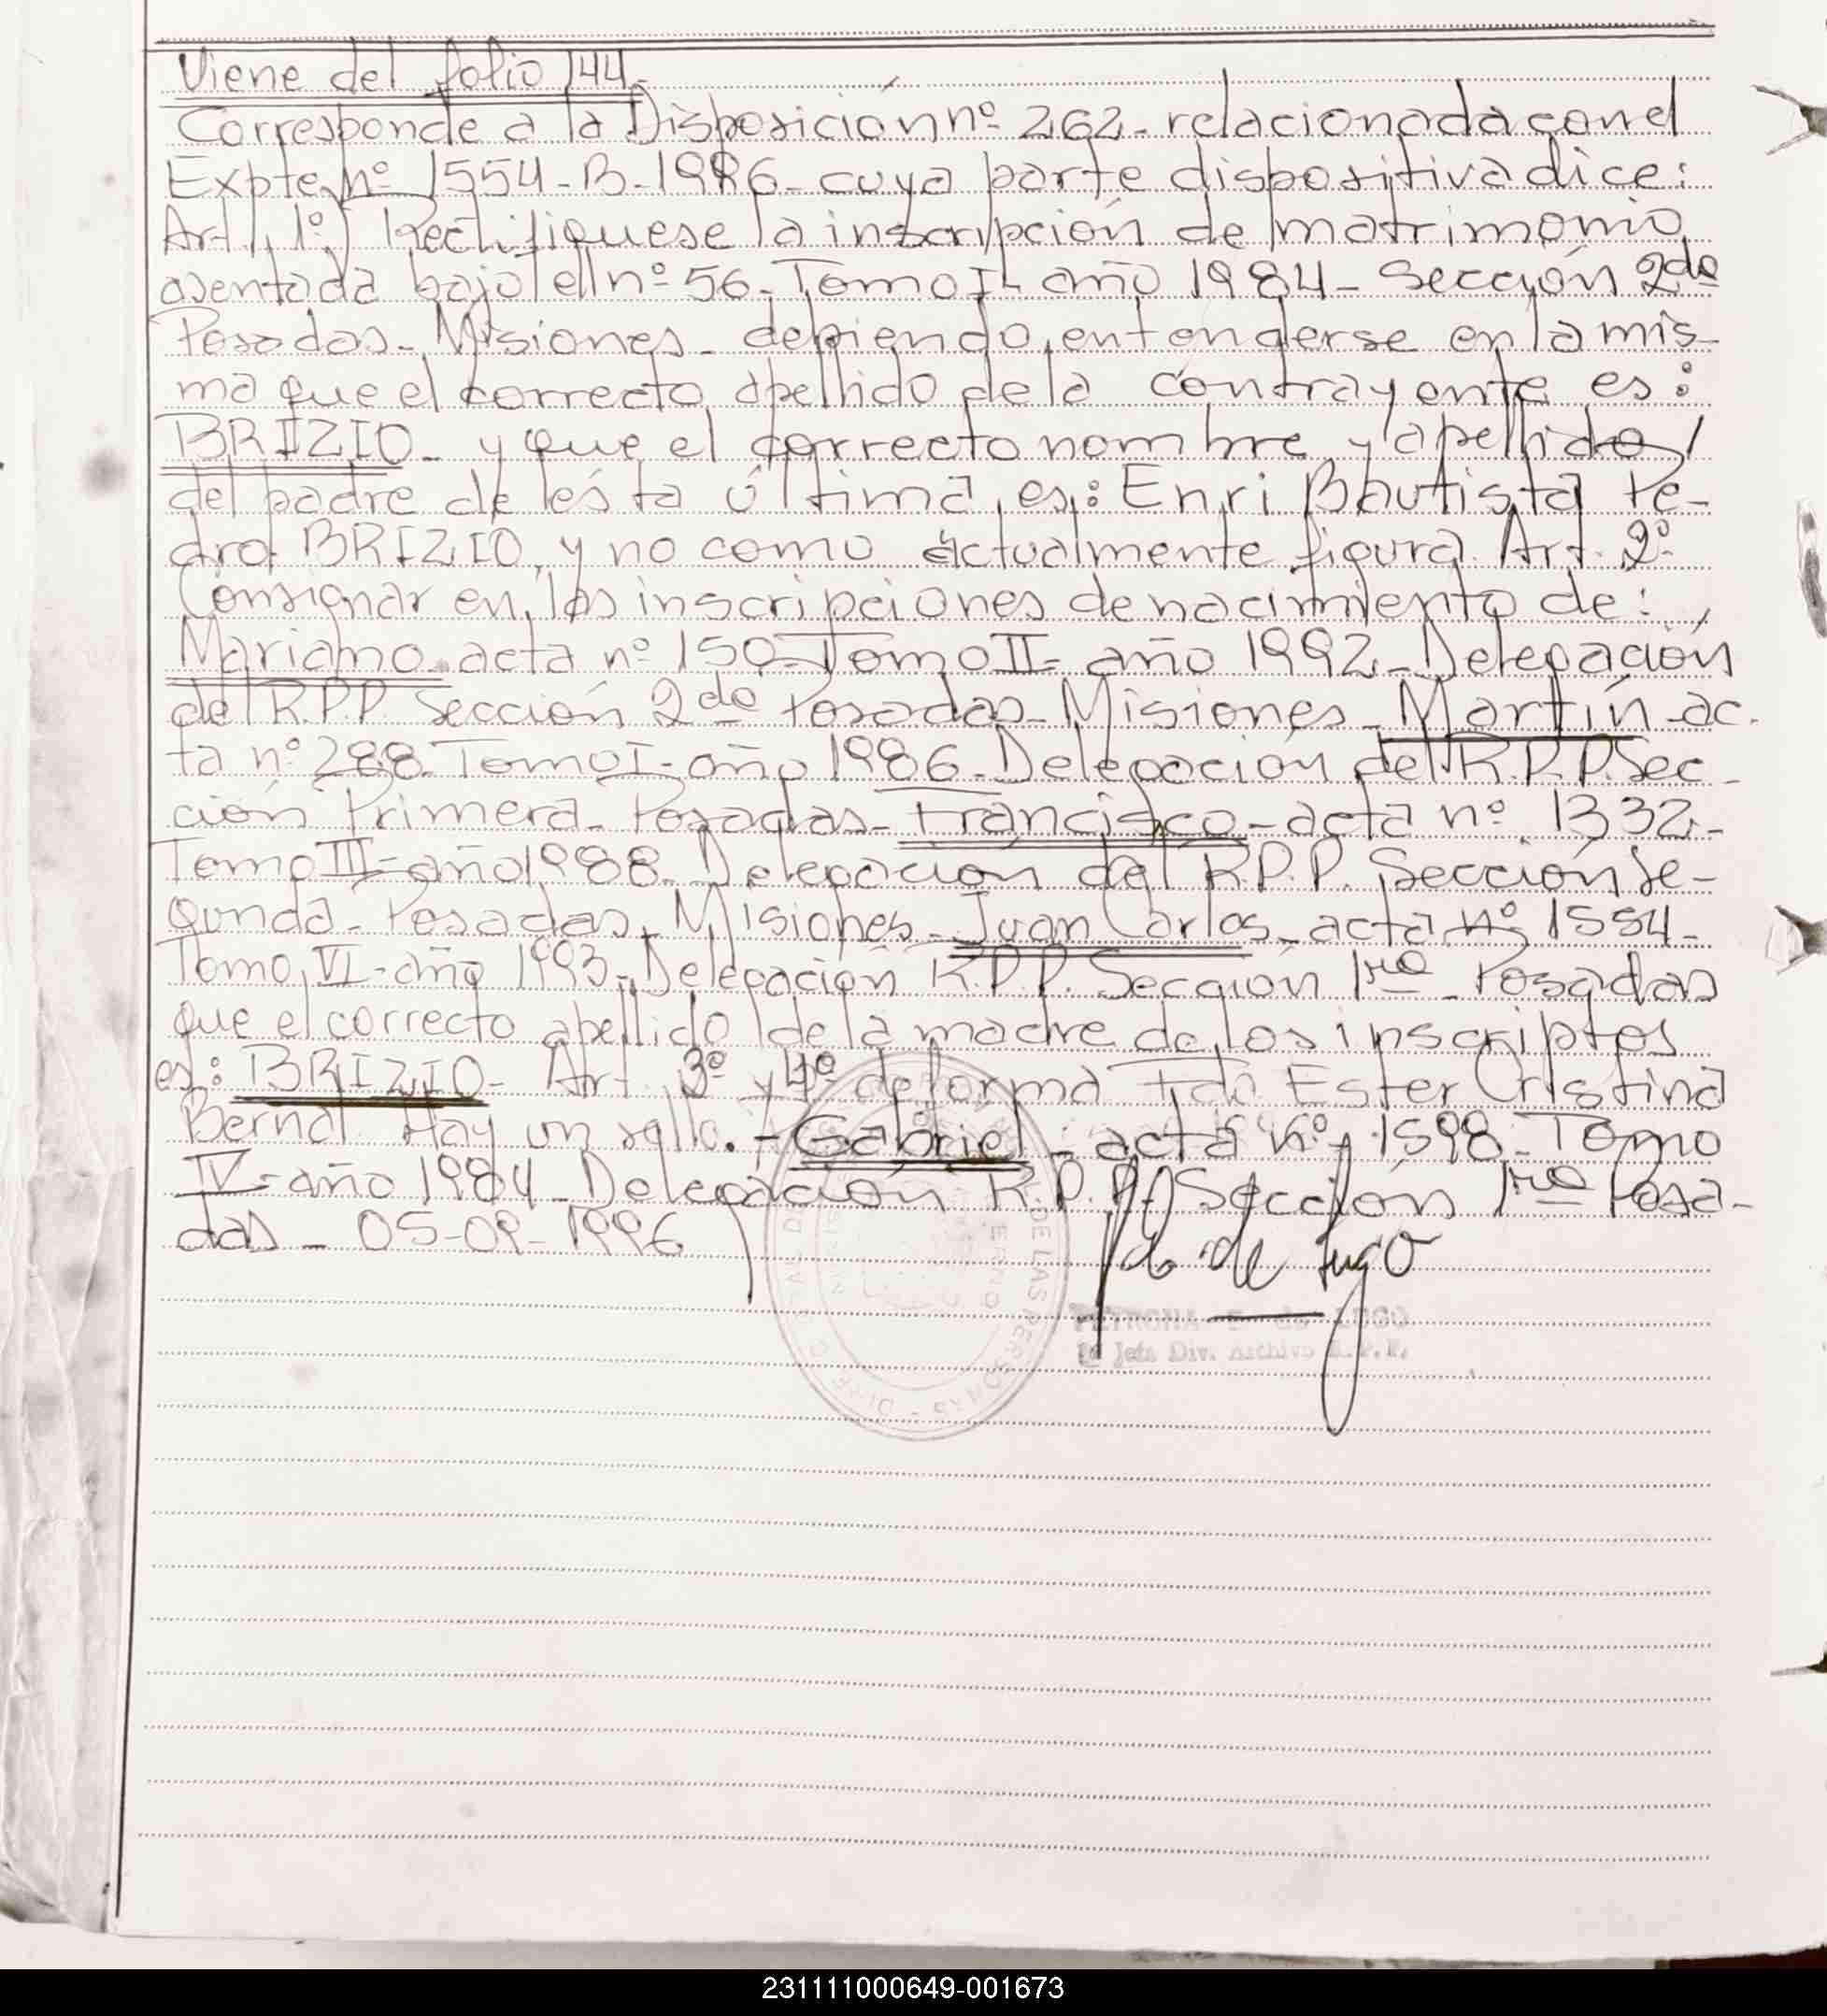 Viene del folio 144.
Corresponde a la Disposición nº 262 - relacionada con el
Expte nº 1554 - B - 1996 - cuya parte dispositiva dice:
Art. 1º) Rectifíquese la inscripción de matrimonio
asentada bajo el nº 56 - Tomo I - año 1984 - Sección 2da
Posadas - Misiones - debiendo entenderse en la mis-
ma que el correcto apellido de la contrayente es:
BRIZIO - y que el correcto nombre y apellido /
del padre de ésta última es: Enri Bautista Pe-
dro BRIZIO, y no como actualmente figura. Art. 2º
Consignar en las inscripciones de nacimiento de:
Mariano - acta nº 150 - Tomo II - año 1992 - Delegación
del R.P.P. Sección 2da Posadas - Misiones - Martín - ac.
ta nº 288 - Tomo I - año 1986 - Delegación del R.P.P. Sec-
ción Primera - Posadas - Francisco - acta nº 1332 -
Tomo III - año 1988 - Delegación del R.P.P. Sección Se-
gunda - Posadas - Misiones - Juan Carlos - acta nº 1554 -
Tomo VI - año 1993 - Delegación R.P.P. Sección 1ra - Posadas
que el correcto apellido de la madre de los inscriptos
es: BRIZIO - Art. 3º y 4º de forma Fdo Ester Cristina
Bernal Hay un sello. - Gabriel - acta nº 1598 - Tomo
IV - año 1984 - Delegación R.P.P. Sección 1ra Posa-
das - 05-09-1996
de Lugo
DE LAS PERSONAS
PETRONA E de LUGO
Jefa Div. Archivo R.P.P.
231111000649-001673